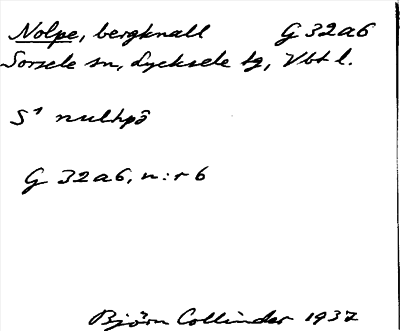 Nolpe, bergknall G 32a6
Sorsele sn, Lycksele tg, Vbt l.
S¹ nulhpō
G 32a6, n:r 6
Björn Collinder 1937